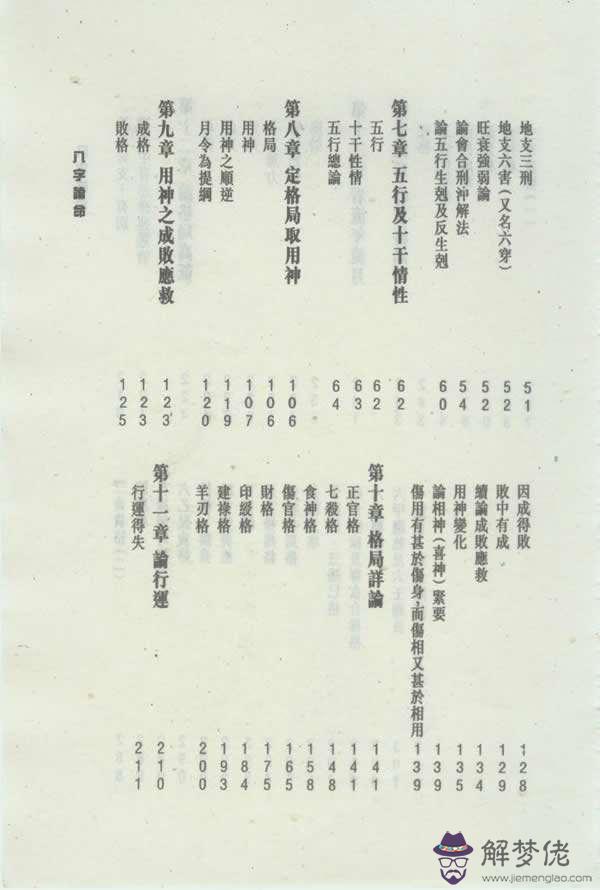 地支三刑 51
地支六害(又名六穿) 52
旺衰強弱論 52
論會合刑沖解法 54
論五行生剋及反生剋 60
第七章 五行及十干情性 62
五行 62
十干性情 63
五行總論 64
第八章 定格局取用神 106
格局 106
用神 107
用神之順逆 119
月令為提綱 120
第九章 用神之成敗應救 123
成格 123
敗格 125
八字論命
因成得敗 128
敗中有成 129
續論成敗應救 134
用神變化 135
論相神(喜神)緊要 139
傷用有甚於傷身,而傷相又甚於相用 139
第十章 格局詳論 141
正官格 141
七殺格 148
食神格 158
傷官格 165
財格 175
印綬格 184
建祿格 193
羊刃格 200
第十一章 論行運 210
行運得失 211
解梦佬
www.jiemenglao.com